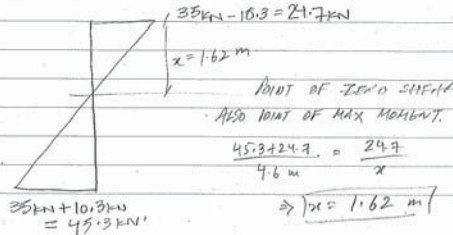 35kN - 10.3 = 24.7kN
x = 1.62 m
POINT OF ZERO SHEAR
ALSO POINT OF MAX MOMENT.
45.3+24.7 / 4.6 m = 24.7 / x
⇒ x = 1.62 m
35kN + 10.3kN
= 45.3kN